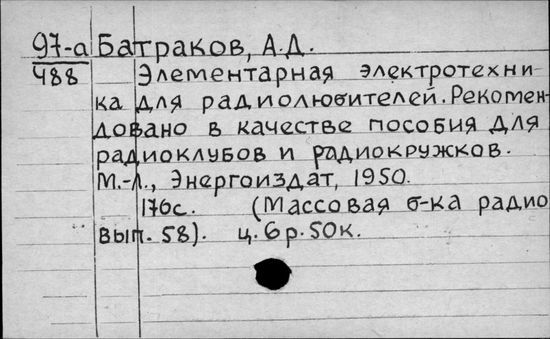 97-а Батраков, А.Д.
488 Элементарная электротехни-
ка для радиолюбителей. Рекомен-
довано в качестве пособия для
радиоклубов и радиокружков.
М.-Л., Энергоиздат, 1950.
176с. (Массовая б-ка радио
вып. 58). ц. 6р. 50к.